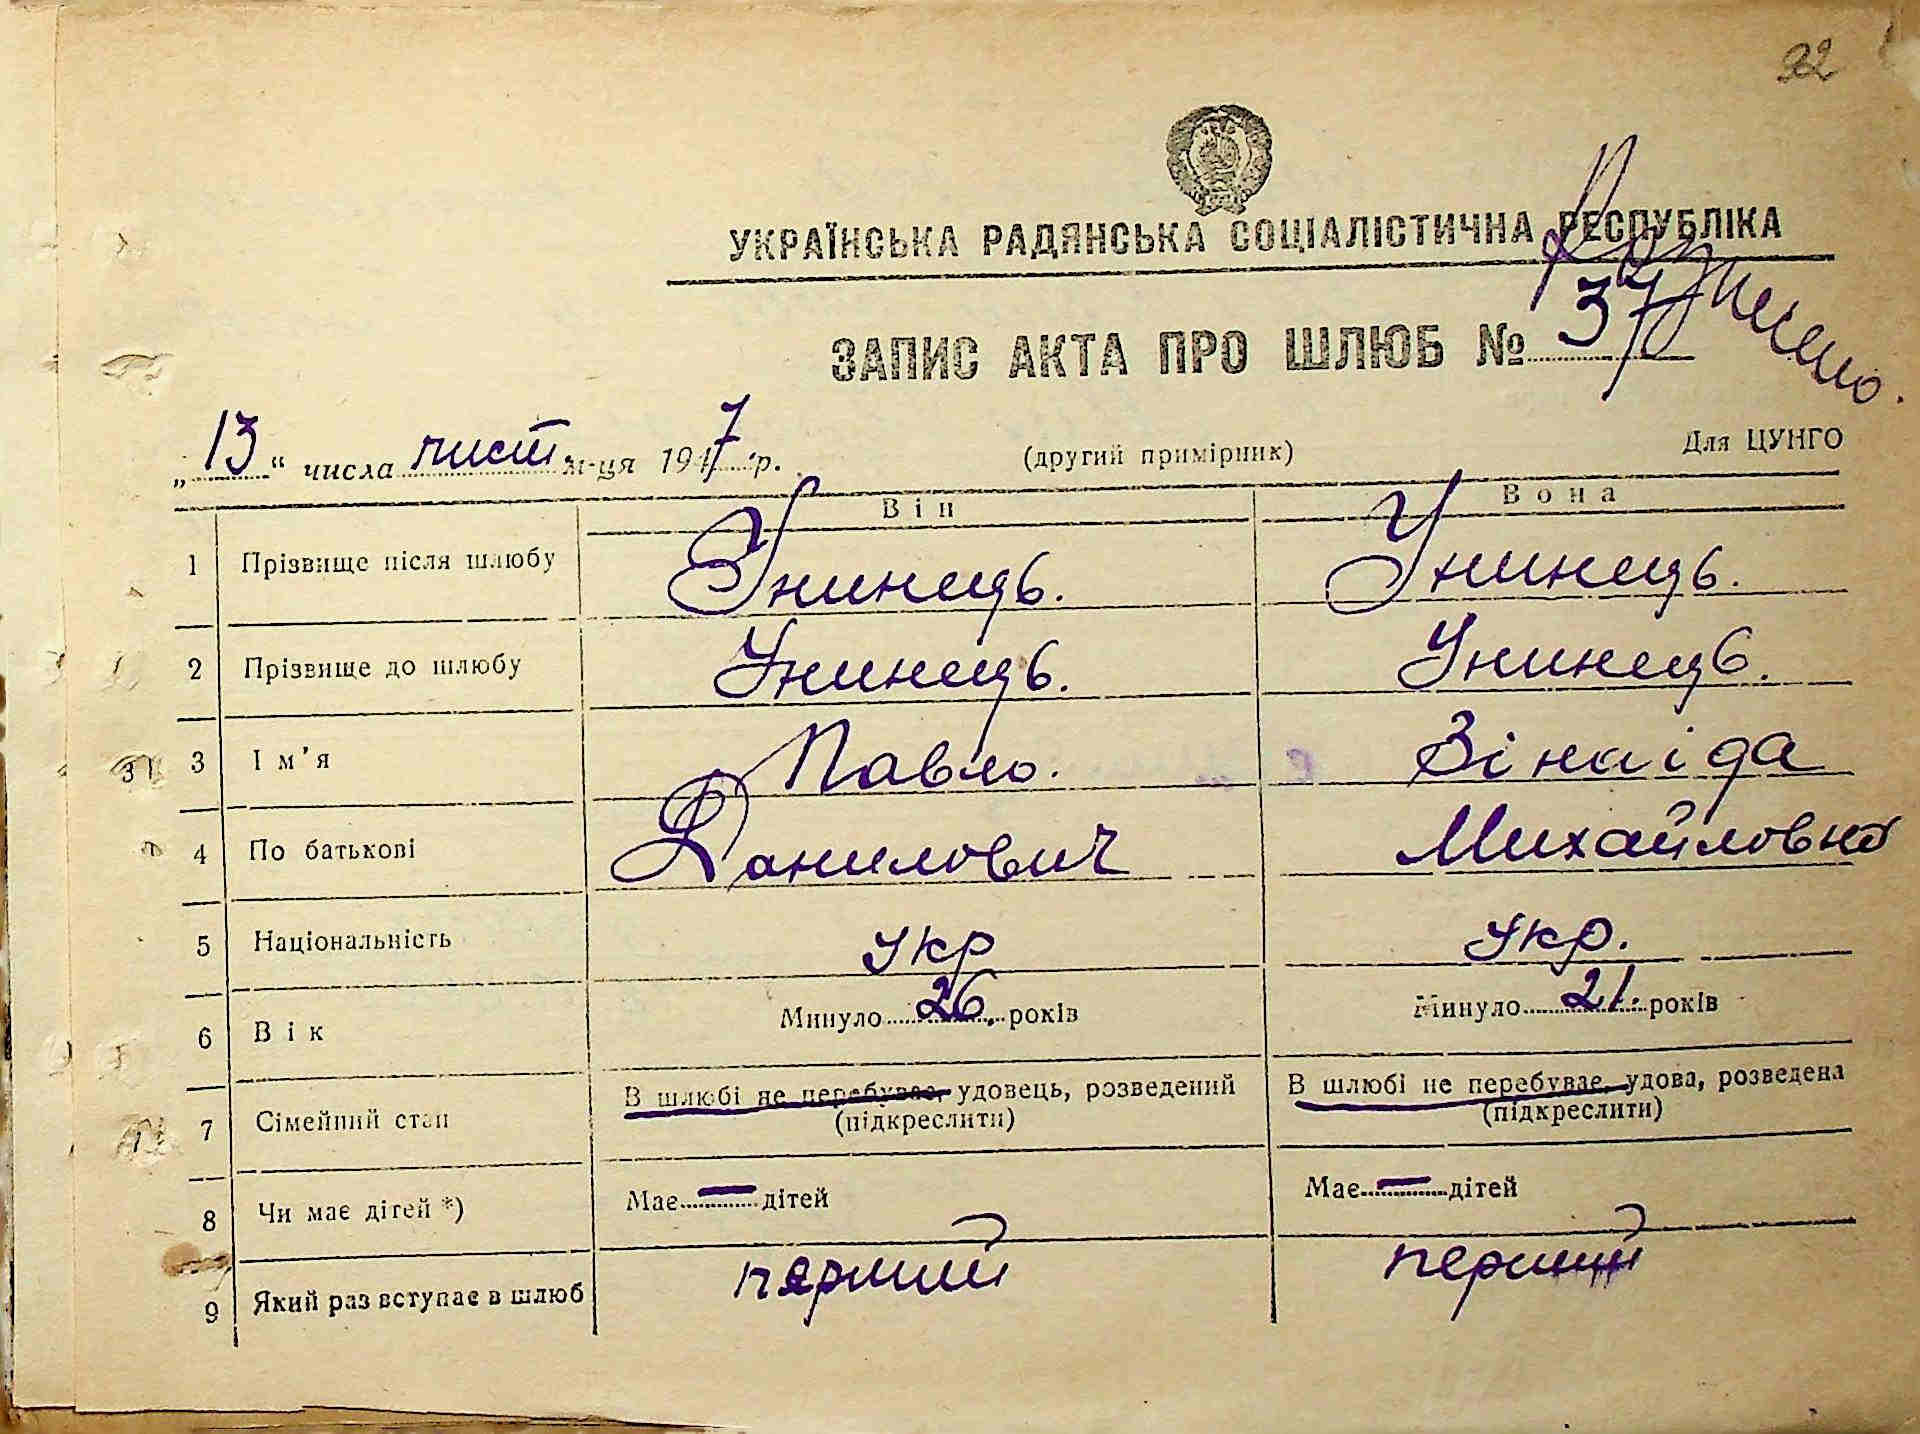 22
УКРАЇНСЬКА РАДЯНСЬКА СОЦІАЛІСТИЧНА РЕСПУБЛІКА
ЗАПИС АКТА ПРО ШЛЮБ № 37
„13“ числа лист м-ця 1947 р. (другий примірник) Для ЦУНГО
Він Вона
1 Прізвище після шлюбу Унинець. Унинець.
2 Прізвище до шлюбу Унинець. Унинець.
3 Ім'я Павло. Зінаіда
4 По батькові Данилович Михайловна
5 Національність укр укр.
6 Вік Минуло 26. років Минуло 21. років
7 Сімейний стан В шлюбі не перебуває, удовець, розведений В шлюбі не перебуває, удова, розведена
(підкреслити) (підкреслити)
8 Чи має дітей *) Має — дітей Має — дітей
9 Який раз вступає в шлюб перший перший